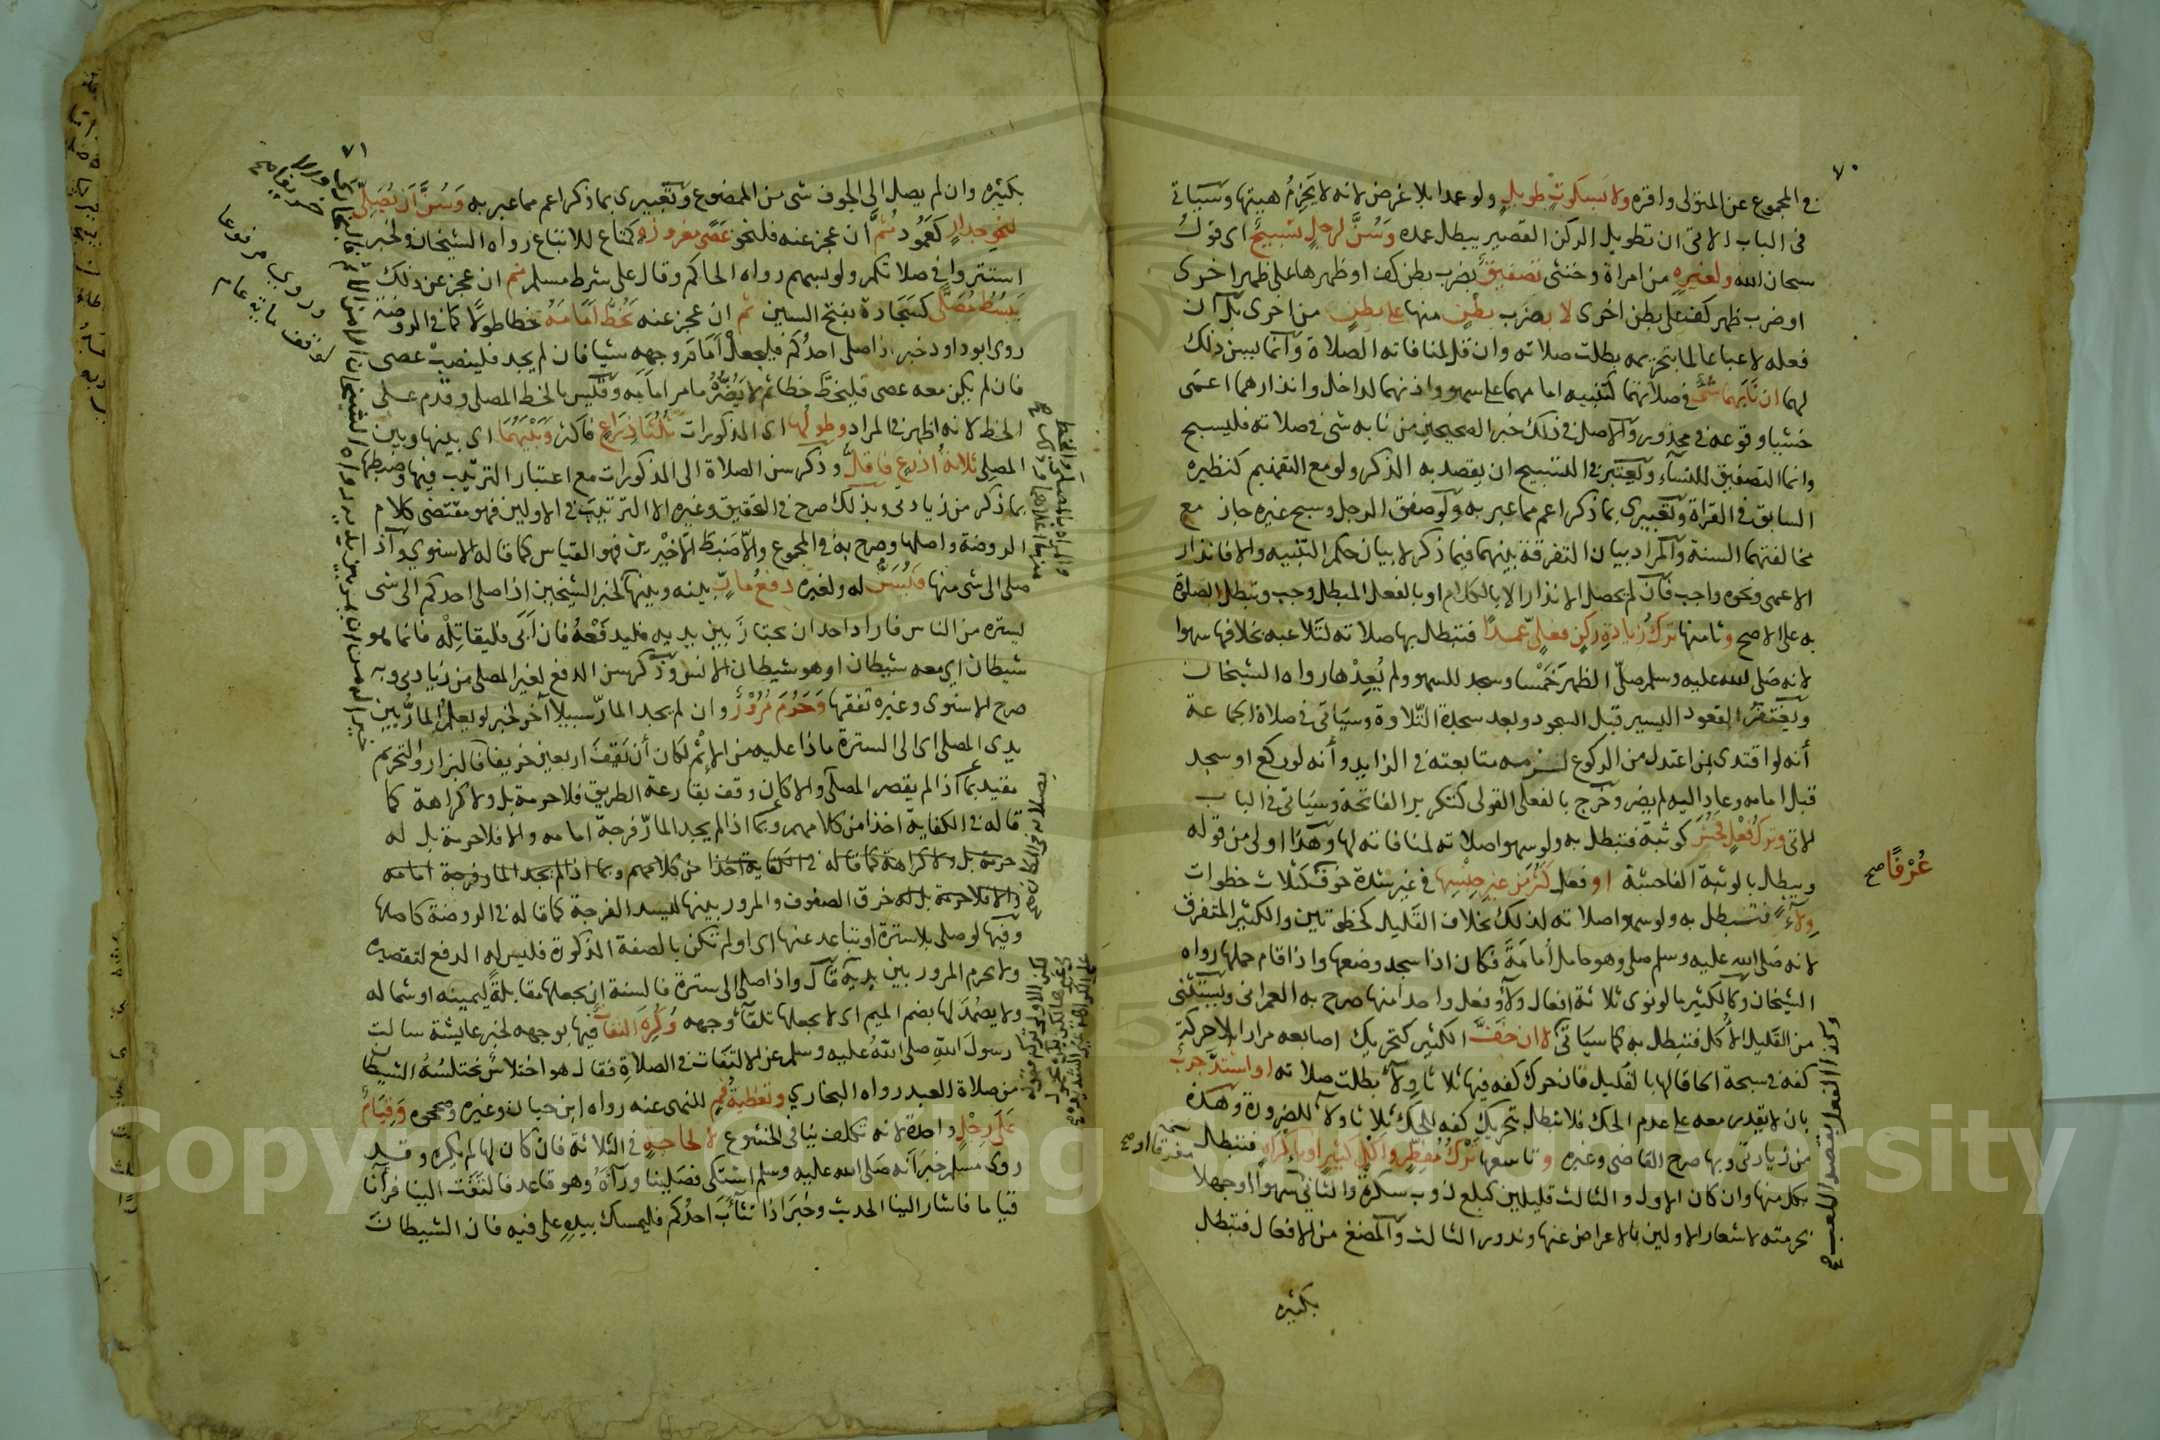 ٧٠
في المجموع عن المتولى واقره ولا بسكوت طويل ولو عمدا بلا غرض لانه لا يخرم هيئتها وسياتي
في الباب الاتى ان تطويل الركن القصير يبطل عمده وسن لرجل تسبيح اى قول
سبحان الله ولغيره من امراة وخنثى تصفيق بضرب بطن كف او ظهرها على ظهر اخرى
او ضرب ظهر كف على بطن اخرى لا بضرب بطن منها على بطن من اخرى بل ان
فعله لاعبا عالما بتحريمه بطلت صلاته وان قل لمنافاته الصلاة وانما يسن ذلك
لهما ان نابهما شئ في صلاتهما كتنبيه امامهما على سهو واذنهما لداخل وانذارهما اعمى
خشيا وقوعه في محذور والاصل في ذلك خبر الصحيحين من نابه شى في صلاته فليسبح
وانما التصفيق للنساء ويعتبر في التسبيح ان يقصد به الذكر ولو مع التفهيم كنظيره
السابق في القراة وتعبيرى بما ذكر اعم مما عبر به ولو صفق الرجل وسبح غيره جاز مع
مخالفتهما السنة والمراد بيان التفرقة بينهما فيما ذكر لا بيان حكم التنبيه والا فانذار
الاعمى ونحوه واجب فان لم يحصل الانذار الا بالكلام او بالفعل المبطل وجب وتبطل الصلاة
به على الاصح وثامنها ترك زيادة ركن فعلى عمدا فتبطل بها صلاته لتلاعبه بخلافها سهوا
لانه صلى الله عليه وسلم صلى الظهر خمسا وسجد للسهو ولم يعدها رواه الشيخان
ويغتفر القعود اليسير قبل السجود وبعد سجدة التلاوة وسياتى في صلاة الجماعة
أنه لو اقتدى بمن اعتدل من الركوع لزمه متابعته في الزايد وأنه لو ركع او سجد
قبل امامه وعاد اليه لم يضر وخرج بالفعلى القولى كتكرير الفاتحة وسياتى في الباب
الاتى وترك فعل فحش كوثبة فتبطل به ولو سهوا صلاته لمنافاته لها وهذا اولى من قوله
وببطل بالوثبة الفاحشة او فعل كثر من غير جنسها في غير شدة خوف كثلاث خطوات
عرفا صح
ولاء فتبطل به ولو سهوا صلاته لذلك بخلاف القليل كخطوتين والكثير المتفرق
لانه صلى الله عليه وسلم صلى وهو حامل أمامة فكان اذا سجد وضعها واذا قام حملها رواه
الشيخان وكالكثير ما لو نوى ثلاثة افعال ولاء وفعل واحدا منها صرح به العمرانى ويستثنى
من القليل الأكل فتبطل به كما سياتى لا ان خف الكثير كتحريك اصابعه مرارا بلا حركة
كفه في سبحة الحاقا لها بالقليل فان حرك كفه فيها ثلاثا ولاء بطلت صلاته او اشتد جرب
بان لا يقدر معه على عدم الحك فلا تبطل بتحريك كفه للحك ثلاثا ولاء للضرورة وهذه
من زيادتى وبها صرح القاضى وغيره وتاسعها ترك مفطر واكل كثير او باكراه فتبطل
بكل منها وان كان الاول والثالث قليلين كبلع ذوب سكرة والثانى سهوا او جهلا
بحرمته لاشعار الاولين بالاعراض عنها وندور الثالث والمضغ من الافعال فتبطل
بكثيره
٧١
بكثيره وان لم يصل الى الجوف شى من الممضوع وتعبيرى بما ذكر اعم مما عبر به وسن ان يصلى
لنحو جدار كعمود ثم ان عجز عنه فلنحو عصى مغروزة كمتاع للاتباع رواه الشيخان ولخبر
استتروا في صلاتكم ولو بسهم رواه الحاكم وقال على شرط مسلم ثم ان عجز عن ذلك
يبسط مصلى كسجادة بفتح السين ثم ان عجز عنه يخط امامه خطا طولا كما في الروضة
روى ابو داود خبر اذا صلى احدكم فليجعل امام وجهه شيا فان لم يجد فلينصب عصى
فان لم يكن معه عصى فليخط خطا ثم لا يضره ما مر امامه وقيس بالخط المصلى وقدم على
الخط لانه اظهر في المراد وطولها اى المذكورات ثلثا ذراع فاكثر وبينهما اى بينها وبين
المصلى ثلاثة اذرع فاقل وذكر سن الصلاة الى المذكورات مع اعتبار الترتيب فيها وضبطها
بما ذكر من زيادتى وبذلك صرح في التحقيق وغيره الا الترتيب في الاولين فهو مقتضى كلام
الروضة واصلها وصرح به في المجموع والا ضبط الاخيرين فهو القياس كما قاله الاسنوى واذا
صلى الى شى منها فيسن له ولغيره دفع مار بينه وبينها لخبر الشيخين اذا صلى احدكم الى شى
يستره من الناس فاراد احد ان يجتاز بين يديه فليدفعه فان ابى فليقاتله فانما هو
شيطان اي معه شيطان او هو شيطان الانس وذكر سن الدفع لغير المصلى من زيادتى وبه
صرح الاسنوى وغيره تفقها وحرم مرور وان لم يجد المار سبيلا آخر لخبر لو يعلم المار بين
يدى المصلى اى الى السترة ماذا عليه من الاثم لكان أن يقف اربعين خريفا فالبزار والتحريم
مقيد بما اذا لم يقصر المصلى والا كان وقف بقارعة الطريق فلا حرمة بل ولا كراهة كما
قاله في الكفاية اخذا من كلامهم وبما اذا لم يجد المار فرجة امامه والا فلا حرمة بل له
حرمة بل ولا كراهة كما قاله في الكفاية اخذا من كلامهم وبما اذا لم يجد المار فرجة امامه
والا فلا حرمة بل له خرق الصفوف والمرور بينها ليسد الفرجة كما قاله في الروضة كاصلها
وفيها لو صلى بلا سترة او تباعد عنها اى او لم تكن بالصفة المذكورة فليس له الدفع لتقصيره
ولا يحرم المرور بين يديه قال واذا صلى الى سترة فالسنة ان يجعلها مقابلة ليمينه او شماله
ولا يصمد لها بضم الميم اى لا يجعلها تلقاء وجهه وكره التفات فيها بوجهه لخبر عايشة سالت
رسول الله صلى الله عليه وسلم عن الالتفات في الصلاة فقال هو اختلاس يختلسه الشيطان
من صلاة العبد رواه البخاري وتغطية فم للنهى عنه رواه ابن حبان وغيره وصححوه وقيام
على رجل واحدة لانه تكلف ينافى الخشوع لا لحاجة في الثلاثة فان كان لها لم يكره وقد
روى مسلم خبر انه صلى الله عليه وسلم اشتكى فصلينا وراه وهو قاعد فالتفت الينا فرآنا
قياما فاشار الينا الحديث وخبر اذا تثاءب احدكم فليمسك بيده على فيه فان الشيطان